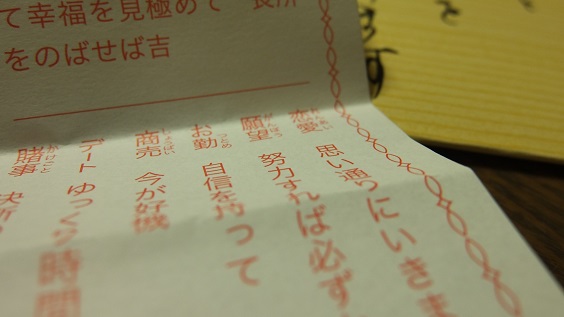 て幸福を見極めて 長所
をのばせば吉
恋愛 思い通りにいきま
願望 努力すれば必ず
お勤 自信を持って
商売 今が好機
デート ゆっくり時間
賭事 決断